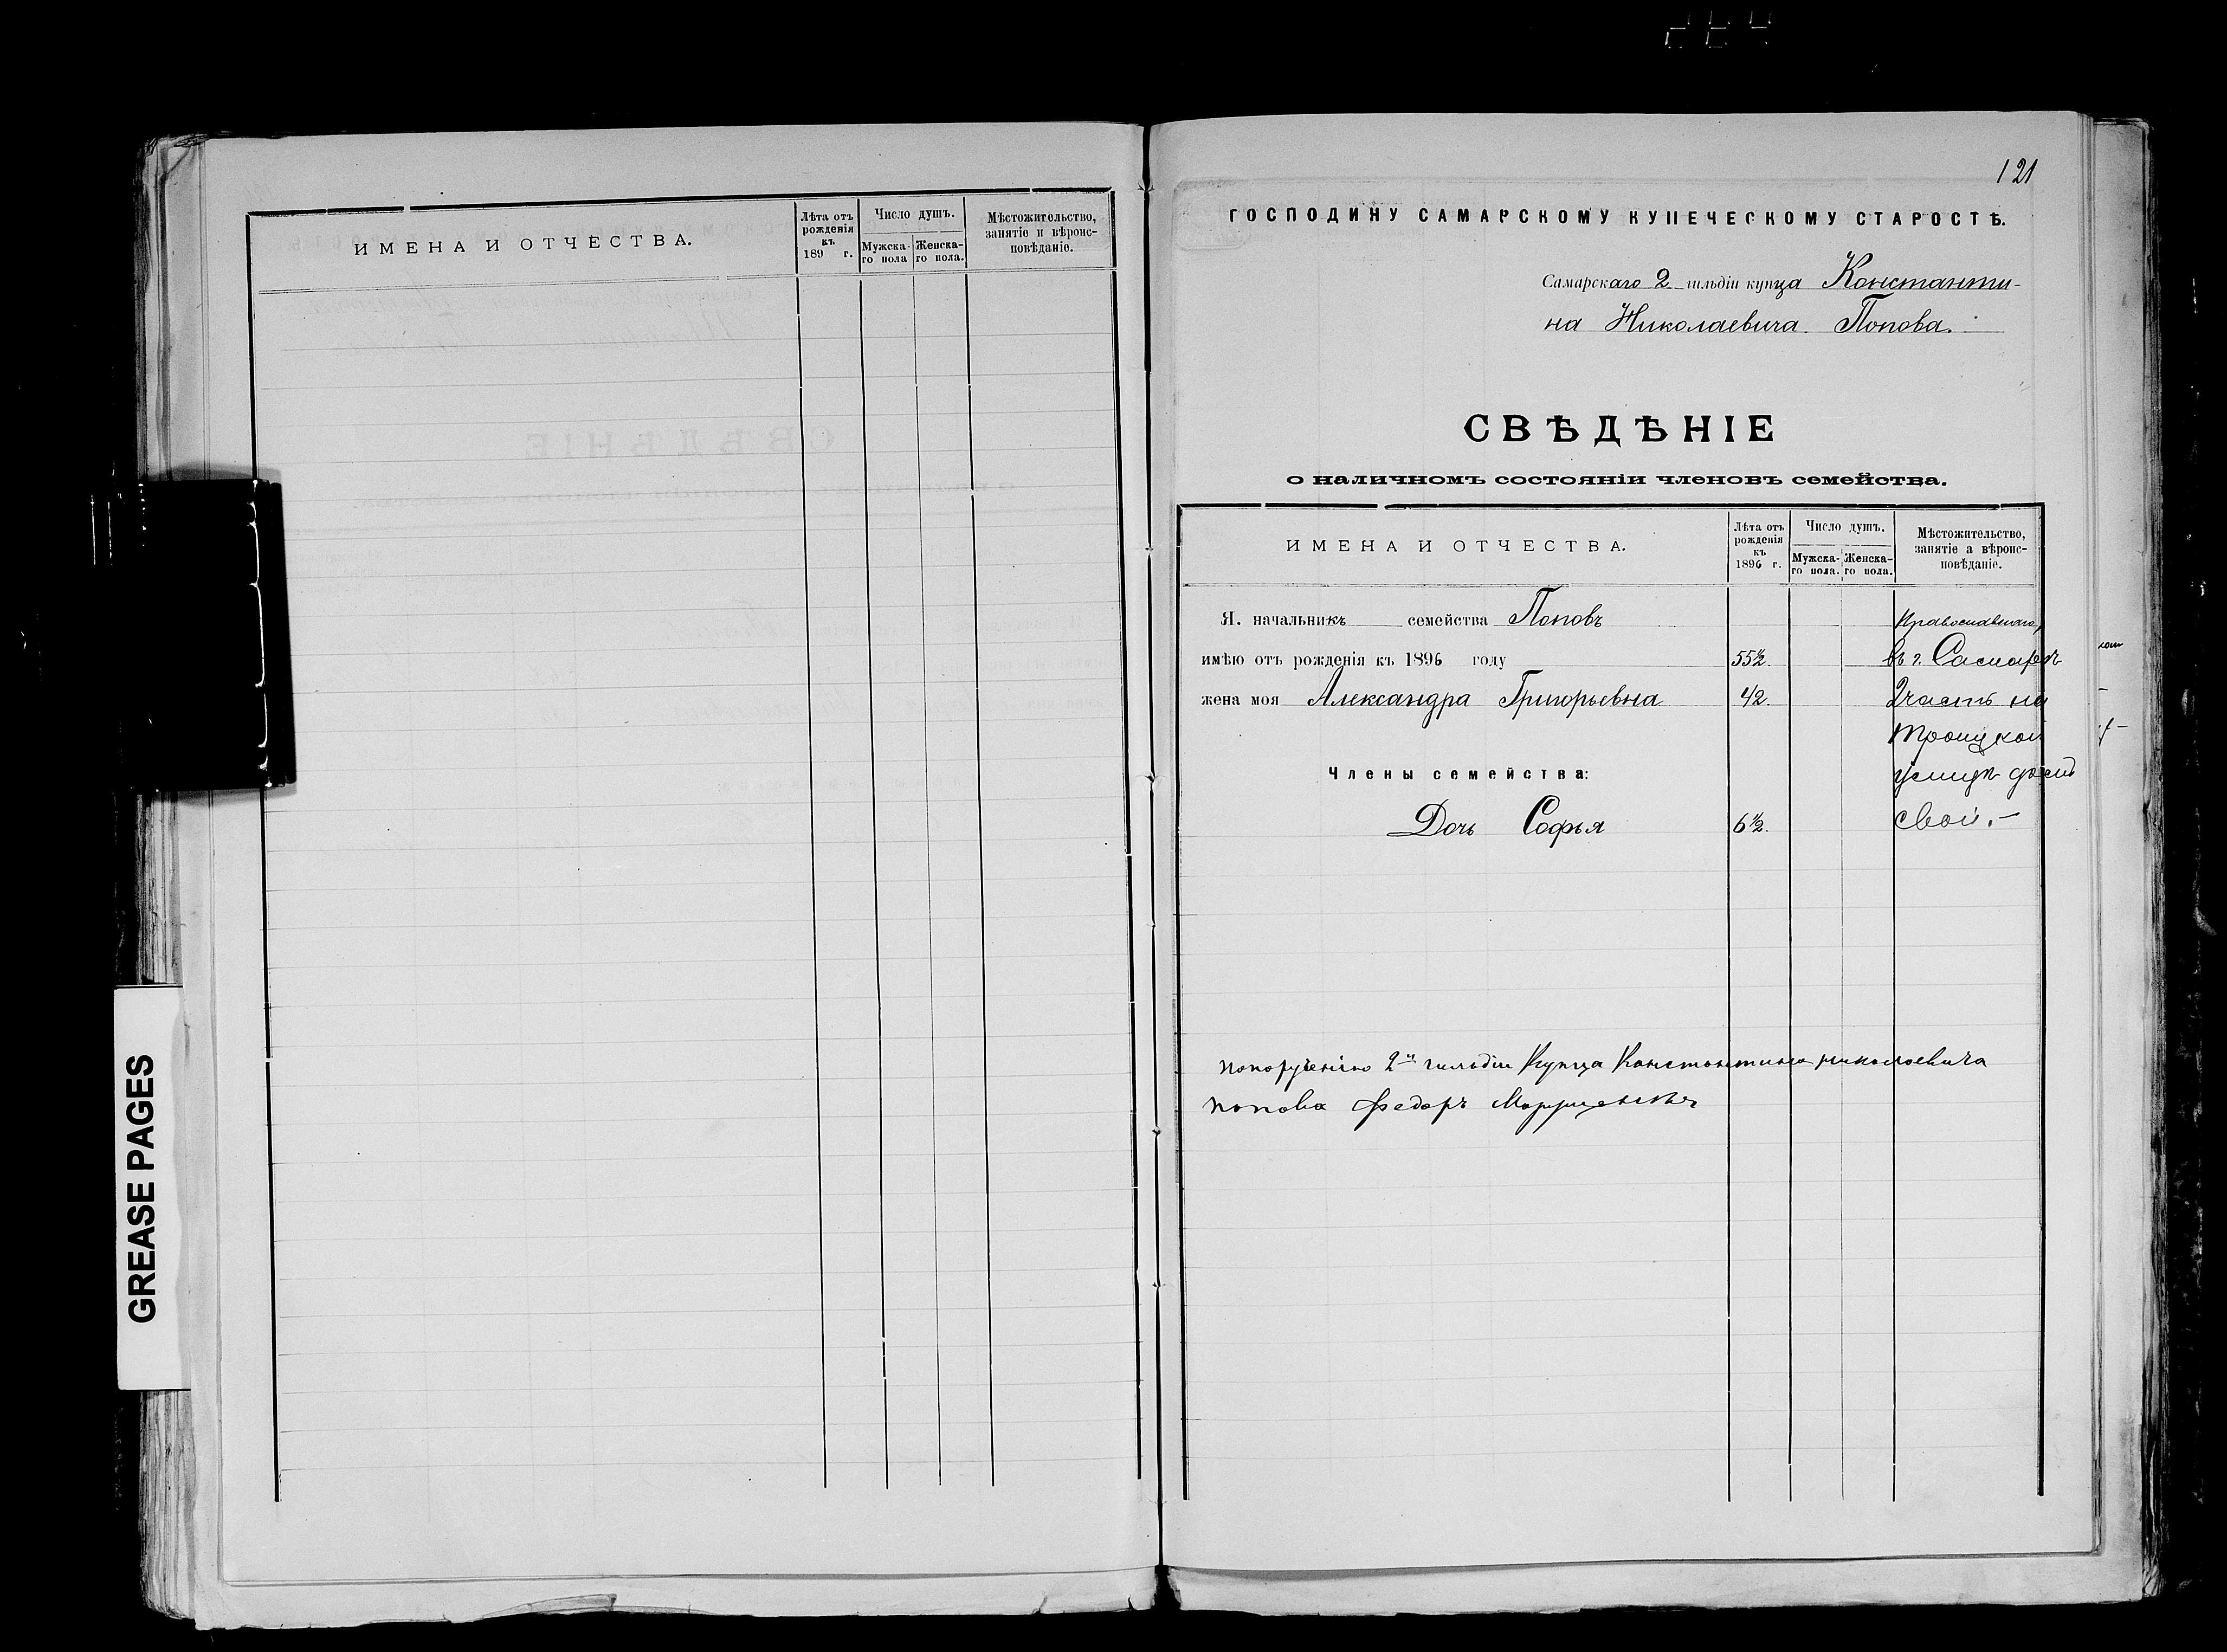 ИМЕНА И ОТЧЕСТВА.
Лѣта отъ
рожденія
къ
189 г.
Число душъ.
Мужска-
го пола
Женска-
го пола.
Мѣстожительство,
занятіе и вѣроис-
повѣданіе.
GREASE PAGES
121
ГОСПОДИНУ САМАРСКОМУ КУПЕЧЕСКОМУ СТАРОСТѢ.
Самарскаго 2 гильдіи купца Константи-
на Николаевича Попова.
СВѢДѢНІЕ
о наличномъ состояніи членовъ семейства.
ИМЕНА И ОТЧЕСТВА.
Лѣта отъ
рожденія
къ
1896 г.
Число душъ.
Мужска-
го пола.
Женска-
го пола.
Мѣстожительство,
занятіе а вѣроис-
повѣданіе.
Я. начальникъ семейства Поповъ
имѣю отъ рожденія къ 1896 году 55½. въ г. Самарѣ
жена моя Александра Григорьевна 42. 2 часть на
Троицкой
Члены семейства: улицѣ домъ
Дочь Софья 6½. свой.-
2й гильдіи Купца Константина николаевича
попова Федоръ